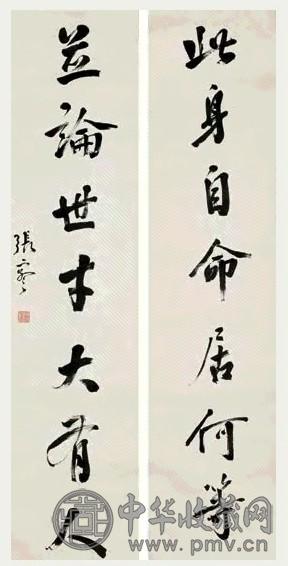 此身自命居何等
並論世才大有人
張謇
中华收藏网
www.pmv.cn